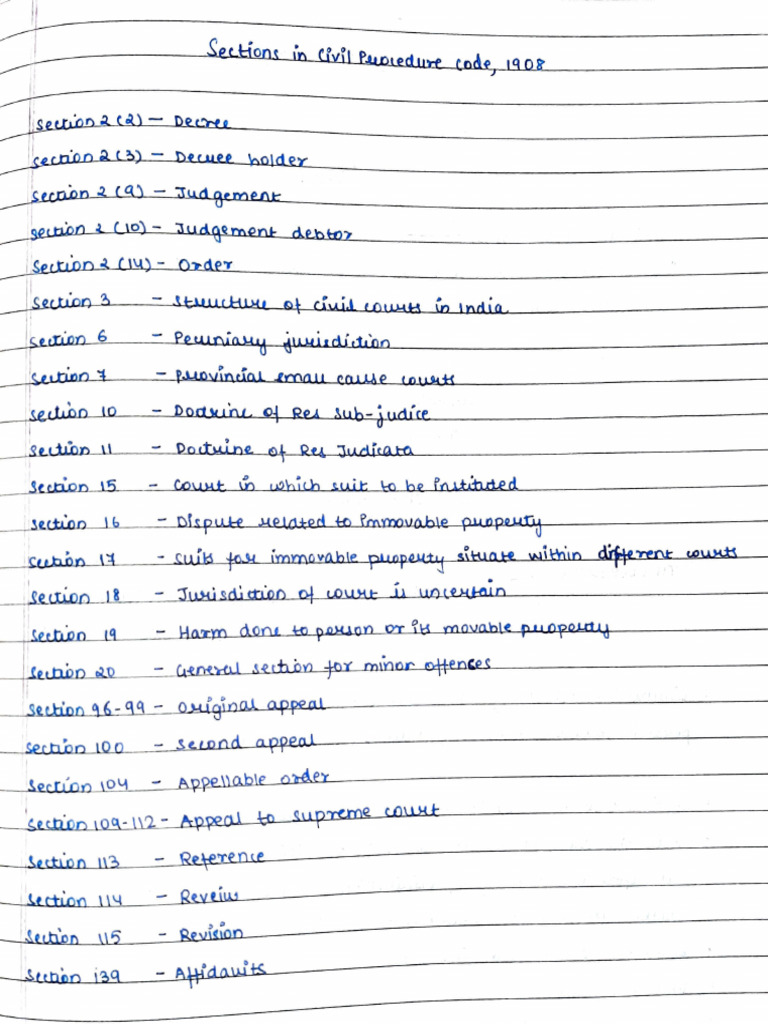 Sections in Civil Procedure code, 1908
Section 2 (2) - Decree
Section 2 (3) - Decree holder
Section 2 (9) - Judgement
Section 2 (10) - Judgement debtor
Section 2 (14) - Order
Section 3 - Structure of civil courts in India
Section 6 - Pecuniary jurisdiction
Section 7 - Provincial small cause courts
Section 10 - Doctrine of Res sub-judice
Section 11 - Doctrine of Res Judicata
Section 15 - Court in which suit to be Instituted
Section 16 - Dispute related to immovable property
Section 17 - Suits for immovable property situate within different courts
Section 18 - Jurisdiction of court is uncertain
Section 19 - Harm done to person or its movable property
Section 20 - General section for minor offences
Section 96-99 - Original appeal
Section 100 - Second appeal
Section 104 - Appellable order
Section 109-112 - Appeal to supreme court
Section 113 - Reference
Section 114 - Reveiw
Section 115 - Revision
Section 139 - Affidavits